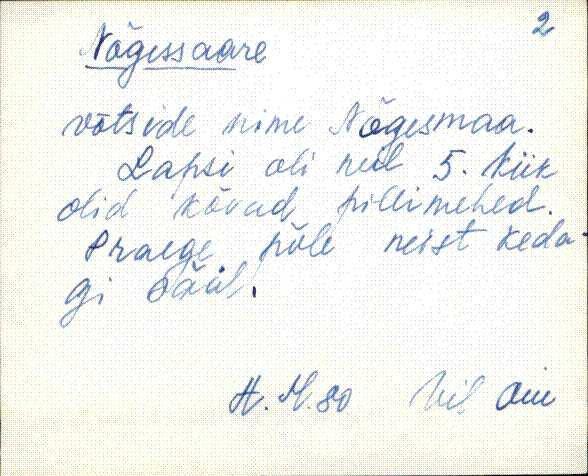 2
Nõgessaare
võtside nime Nõgesmaa.
Lapsi oli neil 5. Kiik
olid kõvad pillimehed.
Praege põle neist keda-
gi sääl.
H. M. 80 Vil